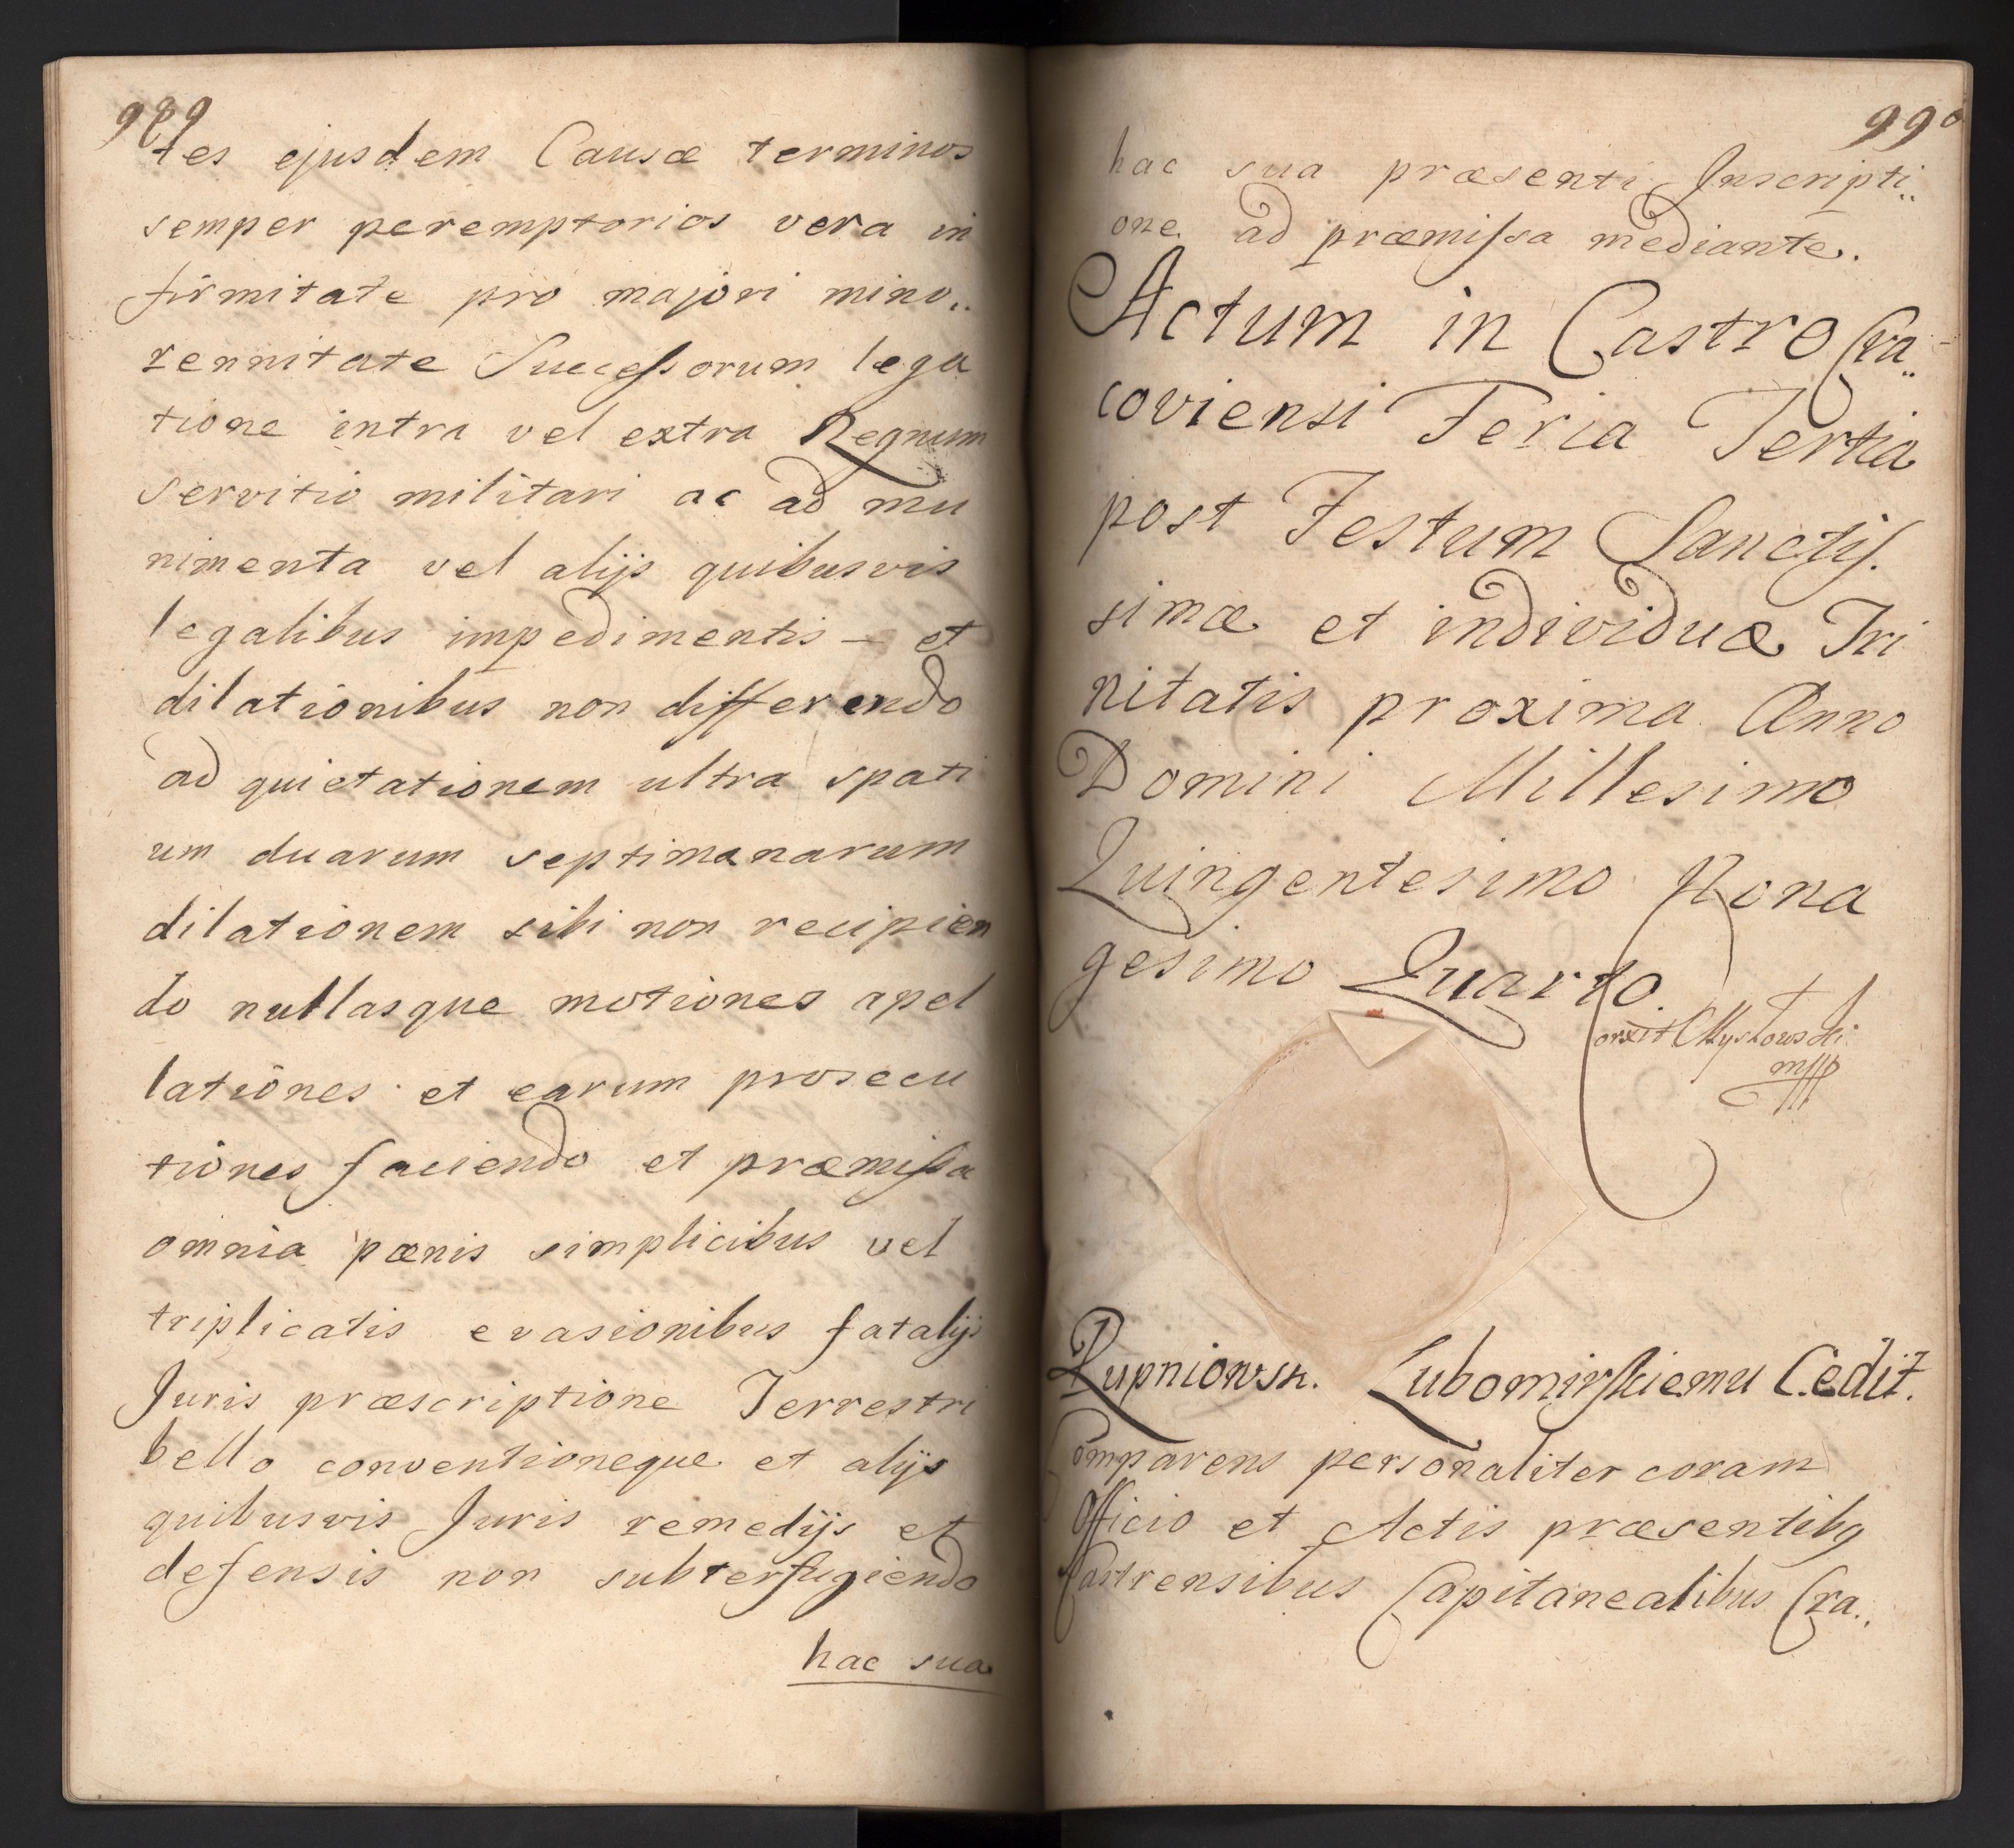 989
tes ejusdem Causæ terminos
semper peremptorios vera in
firmitate pro majori mino..
rennitate Successorum lega
tione intra vel extra Regnum
servitio militari ac ad mu
nimenta vel alijs quibusvis
legalibus impedimentis – et
dilationibus non differendo
ad quietationem ultra spati
um duarum septimanarum
dilationem sibi non recipien
do nullasque motiones apel
lationes et earum prosecu
tiones faciendo et præmissa
omnia pænis simplicibus vel
triplicatis evasionibus fatalijs
Juris præscriptione Terrestri
bello conventioneque et alijs
quibusvis Juris remedijs et
defensis non subterfugiendo
hac sua
990
hac sua præsenti Inscripti..
one ad præmissa mediante.
Actum in Castro Cra..
coviensi Feria Tertia
post Festum Sanctis.
simæ et individuæ Tri
nitatis proxima Anno
Domini Millesimo
Quingentesimo Nona
gesimo Quarto
mpp
Rupniowsk. Lubomirskiemu Cedit.
Comparens personaliter coram
Officio et Actis præsentibq
Castrensibus Capitanealibus Cra..